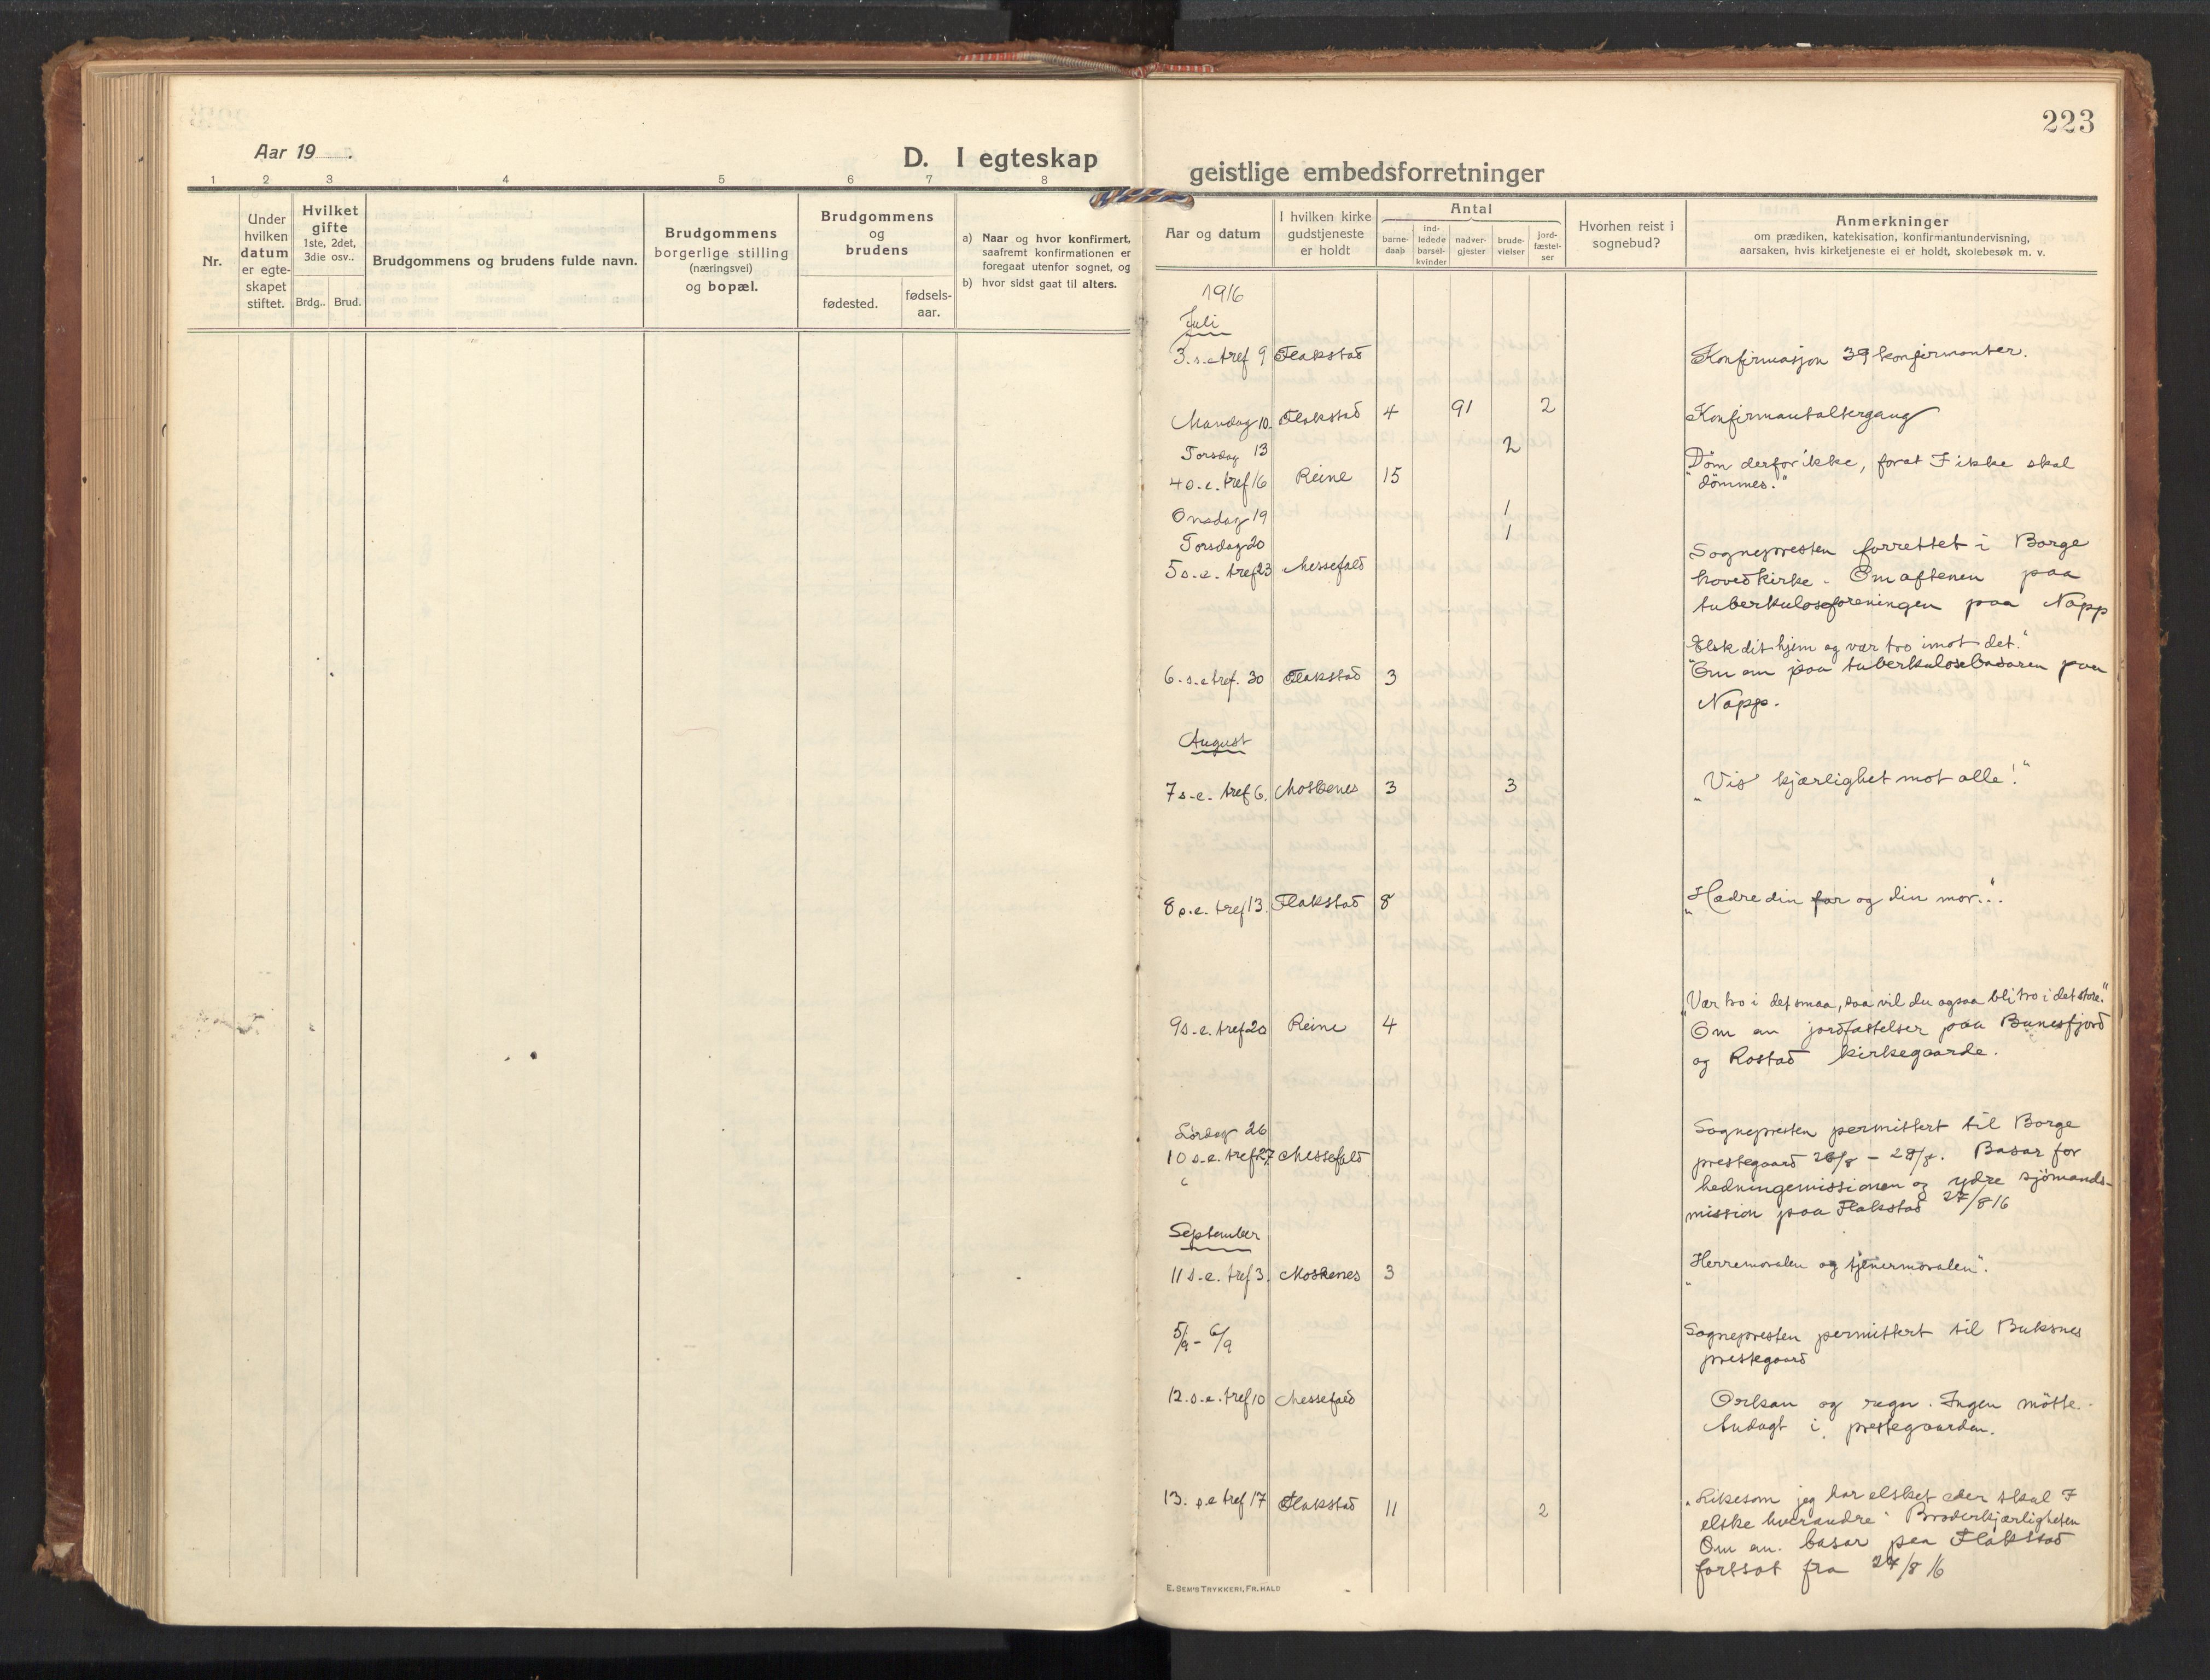 223
Aar 19 .
D. I egteskap
geistlige embedsforretninger
1 2 3 4 5 6 7 8
Nr.
Under hvilken datum er egte- skapet stiftet.
Hvilket gifte
1ste, 2det, 3die osv..
Brdg.. Brud.
Brudgommens og brudens fulde navn.
Brudgommens borgerlige stilling (næringsvei) og bopæl.
Brudgommens og brudens
fødested.
fødsels- aar.
a) Naar og hvor konfirmert, saafremt konfirmationen er foregaat utenfor sognet, og
b) hvor sidst gaat til alters.
Aar og datum
I hvilken kirke gudstjeneste er holdt
Antal
barne- daab
ind- ledede barsel- kvinder
nadver- gjester
brude- vielser
jord- fæstel- ser
Hvorhen reist i sognebud?
Anmerkninger
om prædiken, katekisation, konfirmantundervisning,
aarsaken, hvis kirketjeneste ei er holdt, skolebesøk m. v.
1916
Juli
3. s. e tref 9 Flakstad Konfirmasjon 39 konfirmanter.
Mandag 10. Flakstad 4 91 2 Konfirmantaltergang
Torsdag 13 2
4 s. e. tref 16 Reine 15 "Döm derfor ikke, forat I ikke skal
dömmes."
Onsdag 19 1
Torsdag 20 1
5 s. e. tref 23 Messefald Sognepresten forrettet i Borge
hovedkirke. Om aftenen paa
tuberkuloseforeningen paa Napp
"Elsk dit hjem og vær tro imot det."
6. s. e tref. 30 Flakstad 3 Om em paa tuberkulosebasaren paa
Napp.
August
7 s. e. tref 6. Moskenes 3 3 "Vis kjærlighet mot alle!"
8 s. e. tref 13. Flakstad 8 "Hædre din far og din mor..."
"Vær tro i det smaa, saa vil du ogsaa bli tro i det store."
9 s. e. tref 20 Reine 4 Om em jordfæstelser paa Bunesfjord
og Rostad kirkegaarde.
Lördag 26 Sognepresten permittert til Borge
10 s. e. tref 27 Messefald prestegaard 26/8 - 28/8. Basar for
hedningemissionen og ydre sjömands-
mission paa Flakstad 27/8 16
September
11 s. e. tref 3. Moskenes 3 "Herremoralen og tjenermoralen".
5/9 - 6/9 Sognepresten permittert til Buksnes
prestegaard
12. s. e. tref 10 Messefald Orkan og regn. Ingen mötte.
Andagt i prestegaarden.
13. s. e tref 17 Flakstad 11 2 "Likesom jeg har elsket eder skal I
elske hverandre" Broderkjærligheten
Om em. basar paa Flakstad
fortsat fra 27/8 16
E. SEM'S TRYKKERI, FR. HALD